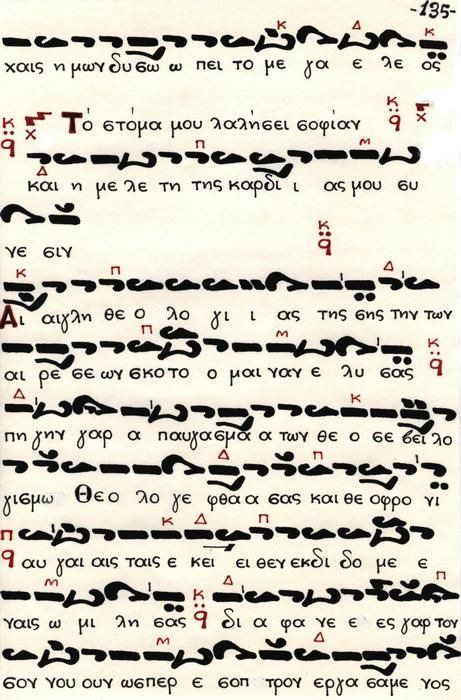 -135-
χαις η μων δυ σω ω πει το με γα ε λε ος
Τό στόμα μου λαλήσει σοφίαν
και η με λε τη της καρδι ι ας μου συ
νε σιν
Αι αιγλη θε ο λο γι ι ας της σης την των
αι ρε σε ων σκοτο ο μαι ναν ε λυ σας
πη γην γαρ α παυγασμα α των θε ο σε σει λο
γισμω Θεο λο γε φθα α σας και θε οφρο νι
αυ γαι αις ταις ε κει ει θεν εκδι δο με ε
ναις ω μι λη σας δι α φα νε ε ες γαρ τον
σον νου ουν ωσπερ ε σοπ τρον εργα σαμε νος